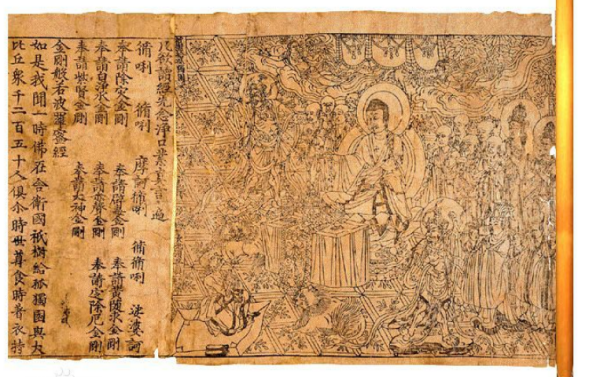 凡欲讀經先念淨口業真言一遍
脩唎 脩唎 摩訶脩唎 脩脩唎 婆訶
奉請除災金剛 奉請辟毒金剛 奉請黃隨求金剛
奉請白淨水金剛 奉請赤聲金剛 奉請定除厄金剛
奉請紫賢金剛 奉請大神金剛
金剛般若波羅蜜經
如是我聞一時佛在舍衛國祇樹給孤獨園與大
比丘衆千二百五十人俱尒時世尊食時著衣持